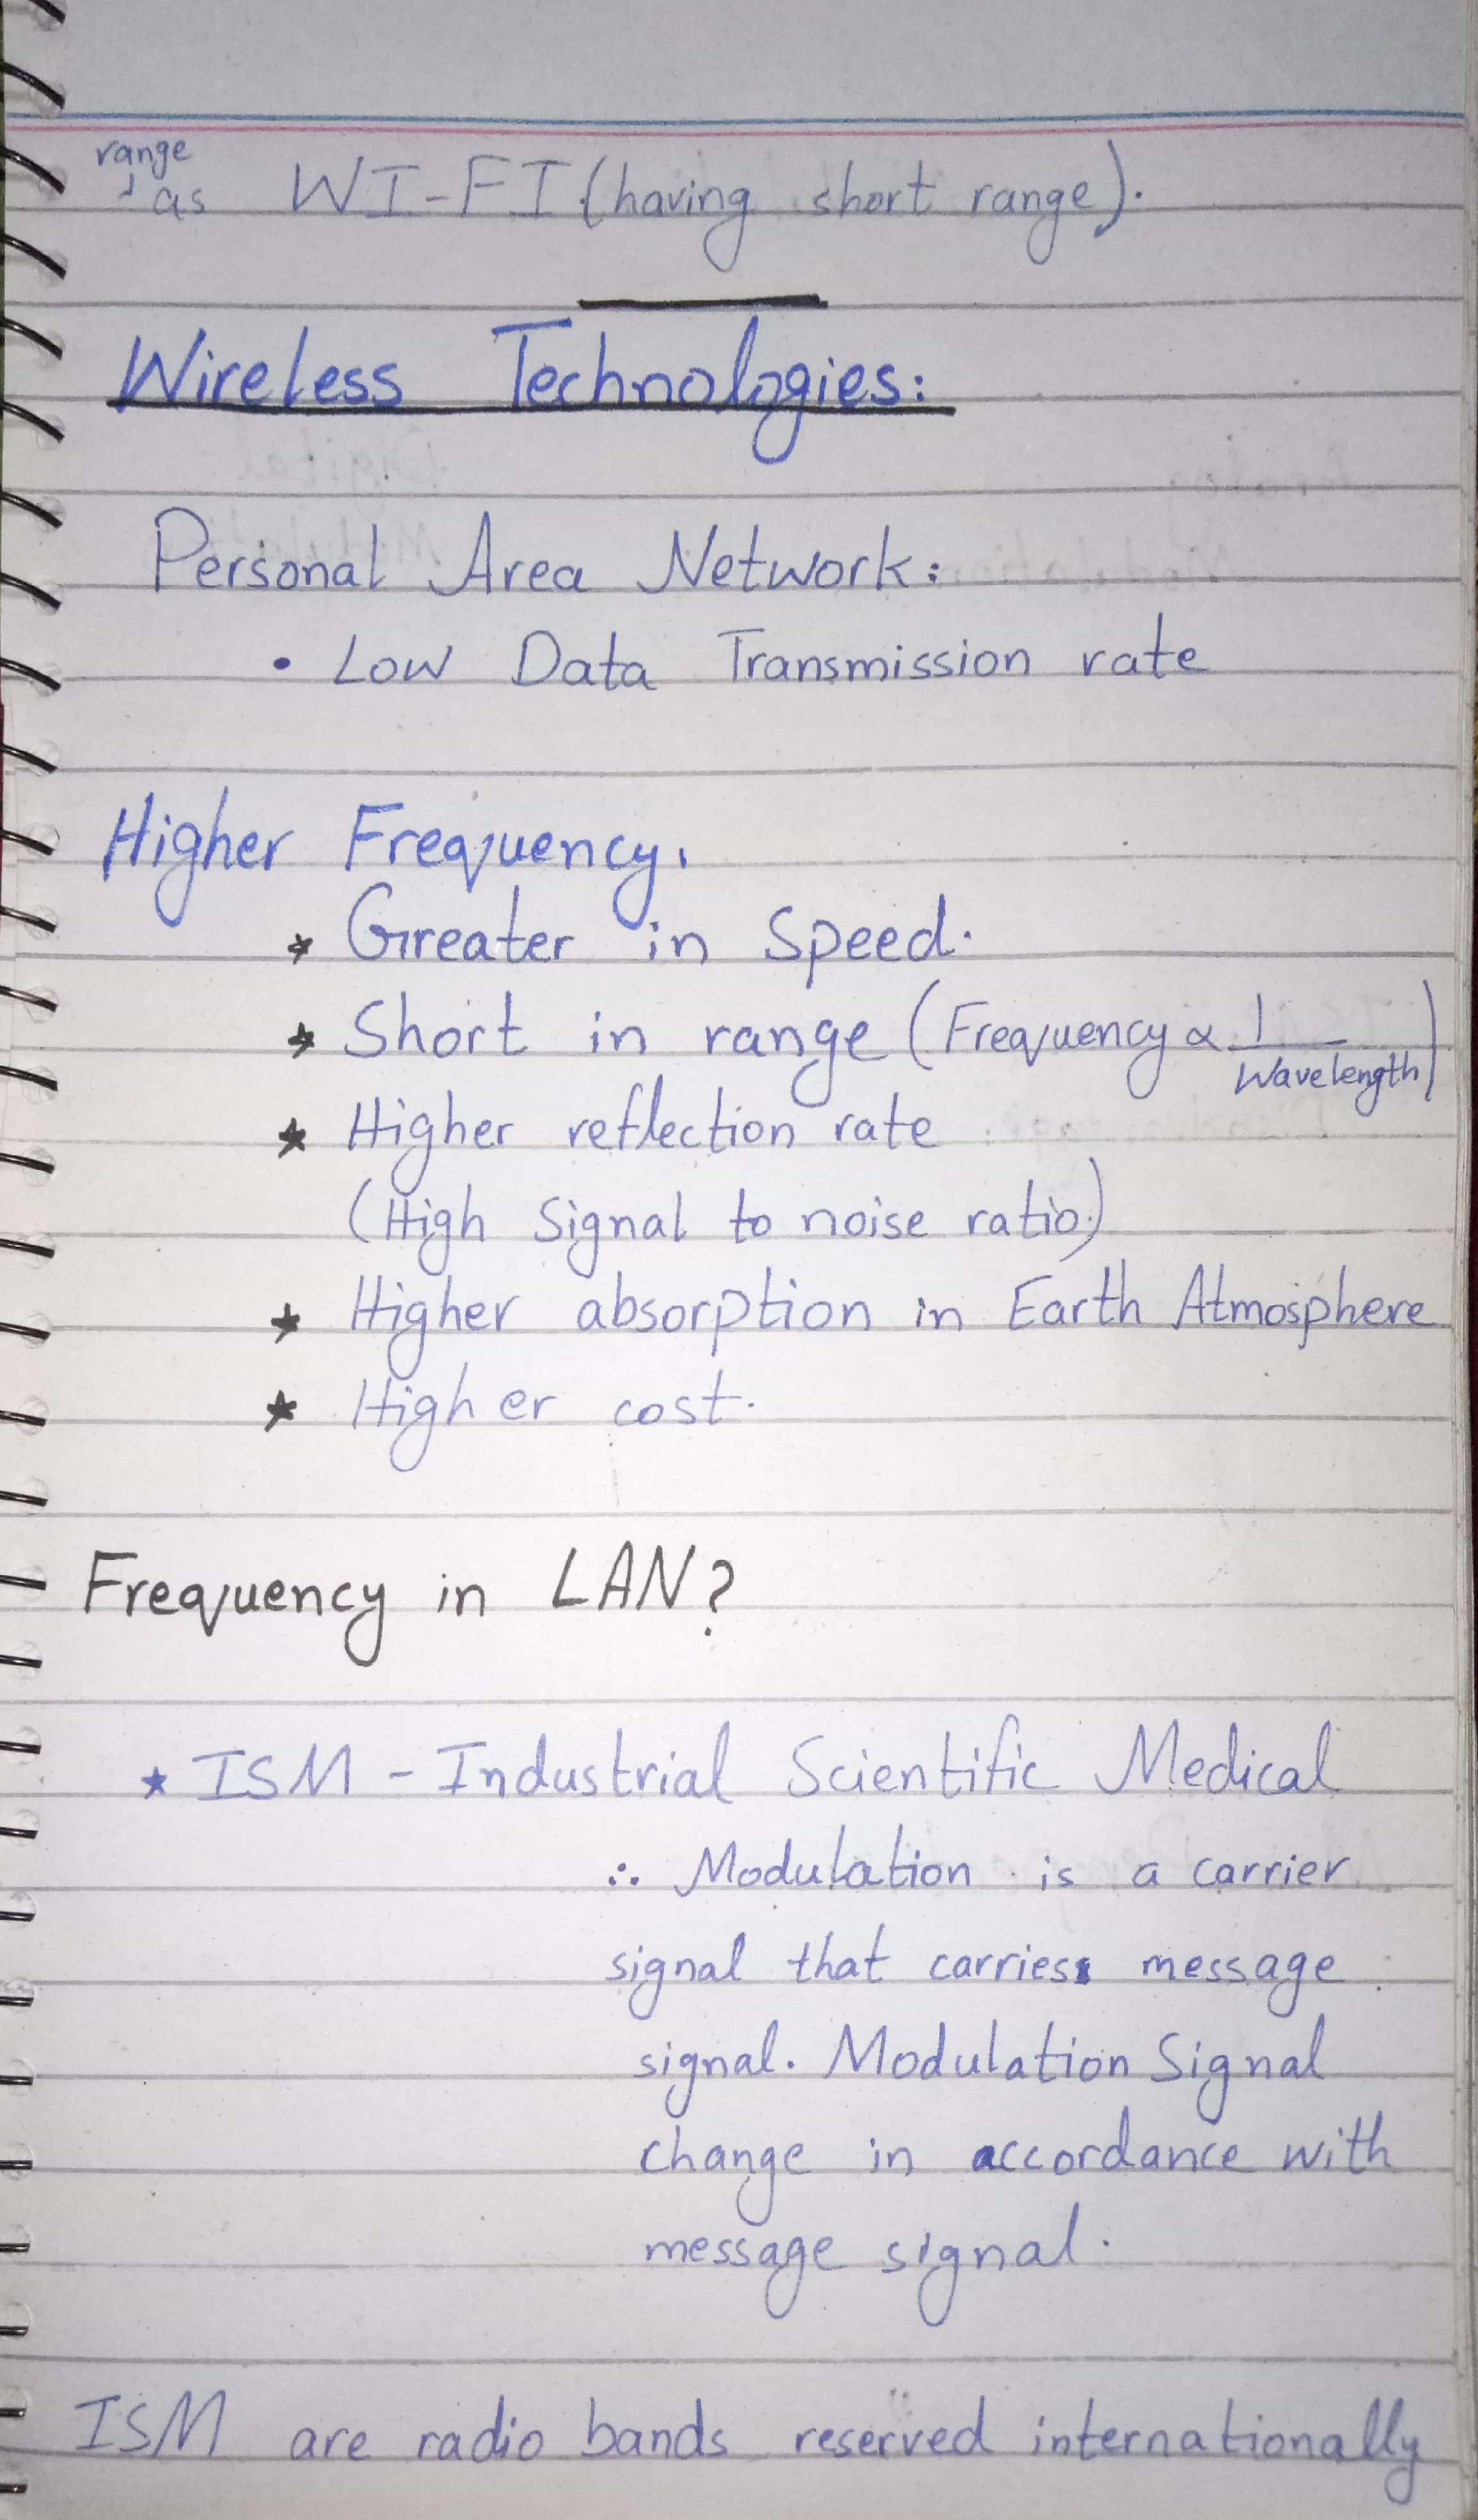 range
as WI-FI (having short range).
Wireless Technologies:
Personal Area Network:
• Low Data Transmission rate
Higher Frequency.
* Greater in Speed.
* Short in range (Frequency ∝ 1/Wavelength)
* Higher reflection rate
(High Signal to noise ratio)
* Higher absorption in Earth Atmosphere
* Higher cost.
Frequency in LAN?
* ISM - Industrial Scientific Medical
∴ Modulation is a carrier
signal that carries message
signal. Modulation Signal
change in accordance with
message signal.
ISM are radio bands reserved internationally